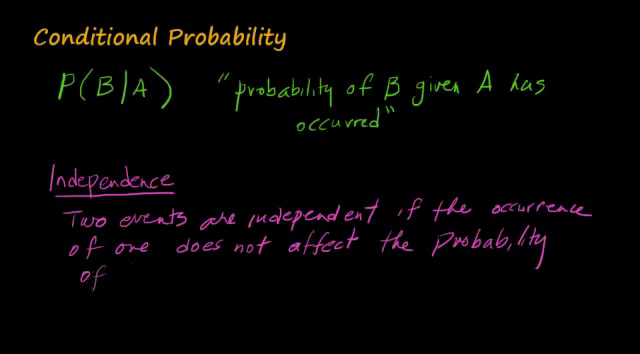 Conditional Probability
P(B/A) "probability of B given A has
occurred"
Independence
Two events are independent if the occurrence
of one does not affect the probability
of